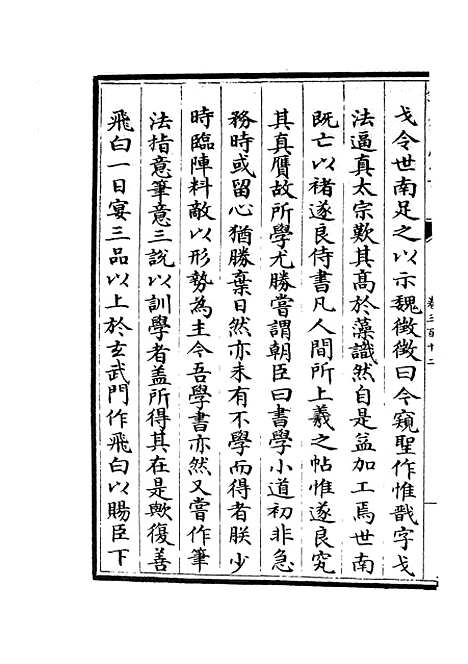 戈令世南足之以示魏徵徵曰今窺聖作惟戩字戈
法逼真太宗歎其髙於藻識然自是益加工焉世南
既亡以褚遂良侍書凡人間所上羲之帖惟遂良究
其真贋故所學尤勝嘗謂朝臣曰書學小道初非急
務時或留心猶勝棄日然亦未有不學而得者朕少
時臨陣料敵以形勢為主今吾學書亦然又嘗作筆
法指意筆意三說以訓學者盖所得其在是歟復善
飛白一日宴三品以上於玄武門作飛白以賜臣下
卷三百十二